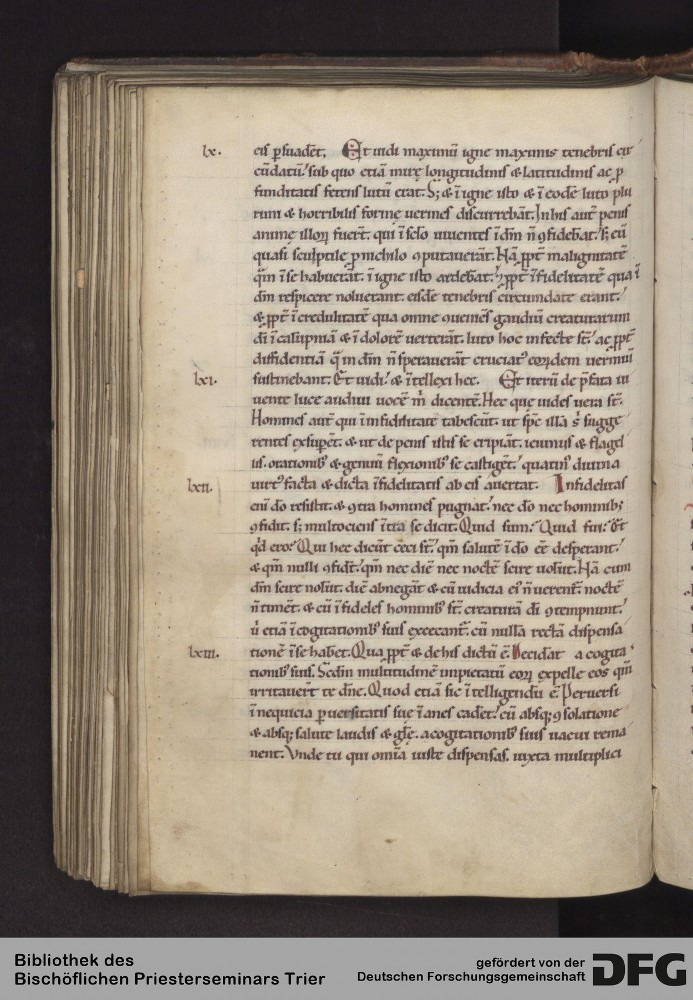 lx. eis ꝑsuadēt. Et uidi maximū igne maximis tenebris cir
cūdatū. sub quo etiā mirę longitudinis & latitudinis ac ꝓ
funditatis fetens lutū erat. S; & ī igne isto & ī eodē luto plu
rimi & horribilis formę uermes discurrebāt. In his autē penis
animę illoꝝ fuerꝉ. qui ī sc̄lo uiuentes ī dm̄ n̄ ꝯfidebāt. s; eū
quasi sculptile ꝓ nichilo ꝯputauerāt. Nā ꝓpt̄ malignitatē
qm̄ ī se habuerāt. ī igne isto ardebāt. ꝓpt̄ īfidelitatē qua ī
dm̄ respicere noluerant. eisdē tenebris circumdate erant.
& ꝓpt̄ īcredulitatē qua omne gaudiū creaturarum
di ī calūpniā & ī dolorē uerterāt. luto hoc infecte st̄. ac ꝓpt̄
diffidentiā q̄ in dm̄ n̄ sperauerāt cruciatꝰ eorꝝdem uermiū
lxi. sustinebant. Et uidi. & ītellexi hec. Et iterū de p̄fata ui
uente luce audiui uocē m̄ dicentē. Hec que uides uera st̄.
Homines autē qui ī infidelitate tabescūt. ut sp̄c illā s̄ sugge
rentes exsuꝑēt. & ut de penis istis se eripiāt. ieiuniis & flagel
lis. orationibꝰ & genuū flexionibꝰ se castigēt. quatinꝰ diuina
lxii. uirtꝰ facta & dicta īfidelitatis ab eis auertat. Infidelitas
eni do resistit. & ꝯtra homines pugnat. nec do nec hominibꝰ
ꝯfidit. s; multociens ītra se dicit. Quid sum. Quid fui. Et
qd̄ ero. Qui hec dicūt ceci st̄. qm̄ salutē ī do eē desperant.
& qm̄ nulli ꝯfidēt. qm̄ nec diē nec noctē scire uolūt. Nā cum
dm̄ scire nolūt. diē abnegāt & cū iudicia eiꝰ n̄ uerentꝉ. noctē
n̄ timēt. & cū īfideles hominibꝰ st̄. creaturā di ꝯtempnunt.
ū etiā ī cogitationibꝰ suis excecantꝉ. cū nullā rectā dispensa
lxiii. tionē ī se habēt. Qua ꝓpt̄ & de his dictū ē. Decidāt a cogita
tionibꝰ suis. Scdm̄ multitudinē impietatū eoꝝ expelle eos qm̄
irritauerꝉ te dn̄e. Quod etiā sic ītelligendū ē. Peruersi
ī nequicia ꝑuersitatis sue īanes cadēt. cū absq; ꝯsolatione
& absq; salute laudis & gl̄e. a cogitationibꝰ suis uacui rema
nent. Vnde tu qui omia iuste dispensas. iuxta multiplici
Bibliothek des
Bischöflichen Priesterseminars Trier
gefördert von der
Deutschen Forschungsgemeinschaft DFG